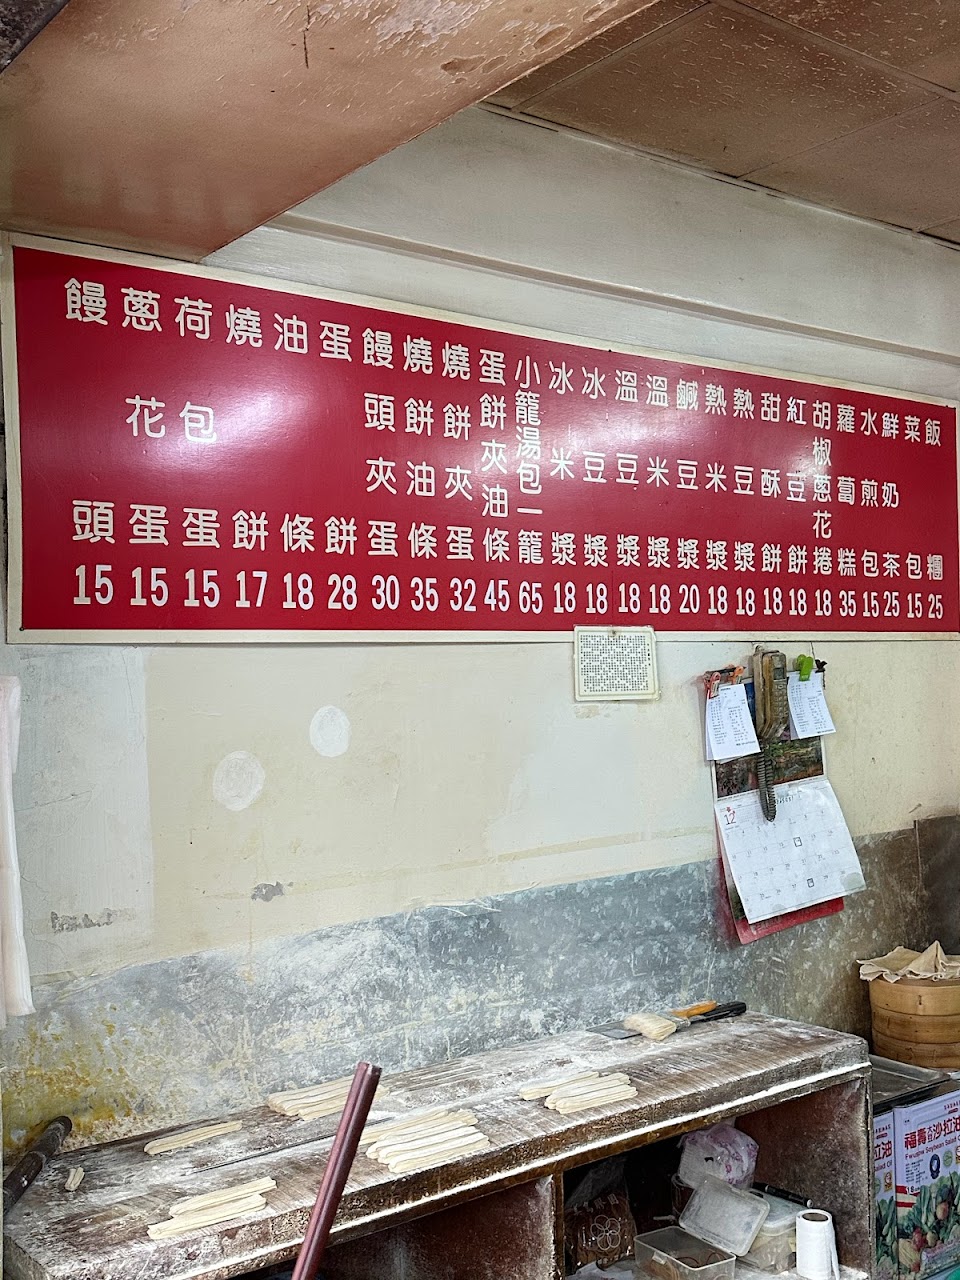 饅頭15
蔥花蛋15
荷包蛋15
燒餅17
油條18
蛋餅28
饅頭夾蛋30
燒餅油條35
燒餅夾蛋32
蛋餅夾油條45
小籠湯包一籠65
冰米漿18
冰豆漿18
溫豆漿18
溫米漿18
鹹豆漿20
熱米漿18
熱豆漿18
甜酥餅18
紅豆餅18
胡椒蔥花捲18
蘿蔔糕35
水煎包15
鮮奶茶25
菜包15
飯糰25
12
拉油
福壽大豆沙拉油